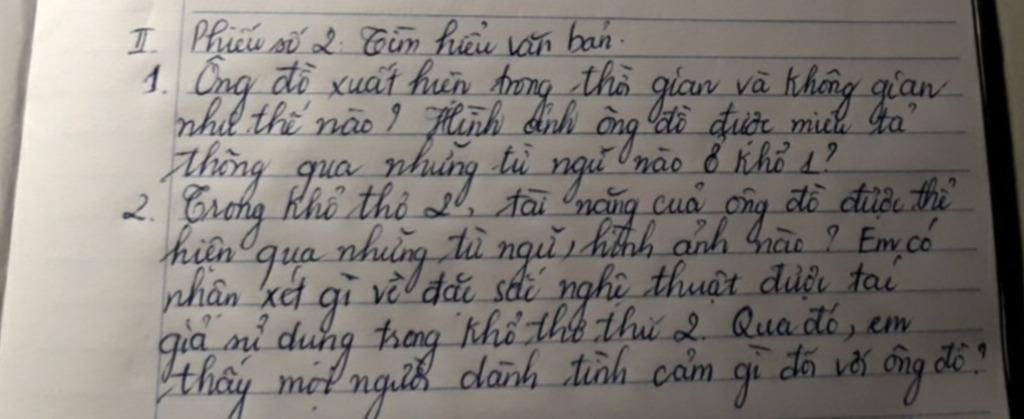 II. Phiếu số 2. Tìm hiểu văn bản.
1. Ông đồ xuất hiện trong thời gian và không gian
như thế nào? Hình ảnh ông đồ được miêu tả
thông qua những từ ngữ nào ở khổ 1?
2. Trong khổ thơ 2, tài năng của ông đồ được thể
hiện qua những từ ngữ, hình ảnh nào? Em có
nhận xét gì về đặc sắc nghệ thuật được tác
giả sử dụng trong khổ thơ thứ 2. Qua đó, em
thấy mọi người dành tình cảm gì đối với ông đồ?